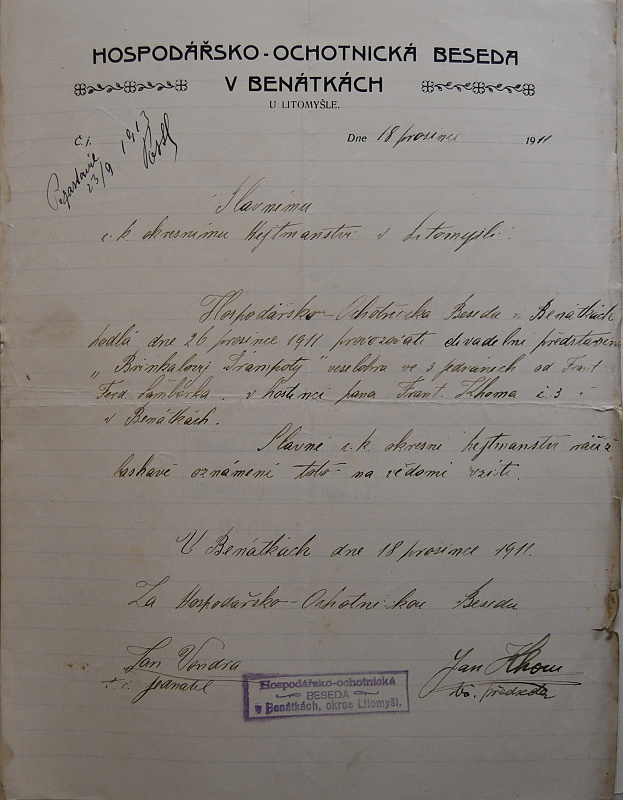 HOSPODÁŘSKO-OCHOTNICKÁ BESEDA
V BENÁTKÁCH
U LITOMYŠLE.
Č. j.
Dne 18 prosince 1911.
23/9 1913
Slavnému
c. k. okresnímu hejtmanství v Litomyšli.
Hospodářsko-Ochotnická Beseda v Benátkách
hodlá dne 26 prosince 1911 provozovati divadelní představení
„Brinkalovy Trampoty" veselohra ve 3 jednáních od Frant
Ferd. Šamberka. v hostinci pana Frant. č. 3
v Benátkách.
Slavné c. k. okresní hejtmanství račiž
laskavě oznámení toto na vědomí vzíti.
V Benátkách dne 18 prosince 1911.
Za Hospodařsko-Ochotnickou Besedu
Jan Vondra
t. č. jednatel
Jan
předseda
Hospodářsko-ochotnická
BESEDA
v Benátkách, okres Litomyšl.